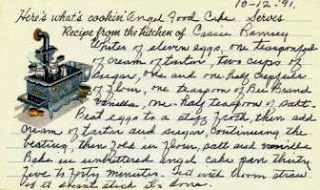 10-12-'91.
Here's what's cookin' Angel Food Cake Serves
Recipe from the kitchen of Cassie Ramsey
Whites of eleven eggs, one teaspoonful
of cream of tartar, two cups of
sugar, one and one half cupfuls
of flour, one teaspoon of Bee Brand
vanilla, one-half teaspoon of salt.
Beat eggs to a stiff froth, then add
cream of tartar and sugar, continuing the
beating, then fold in flour, salt and vanilla
Bake in unbuttered angel cake pan thirty
five to forty minutes. Test with broom straw
if it doesn't stick it's done.